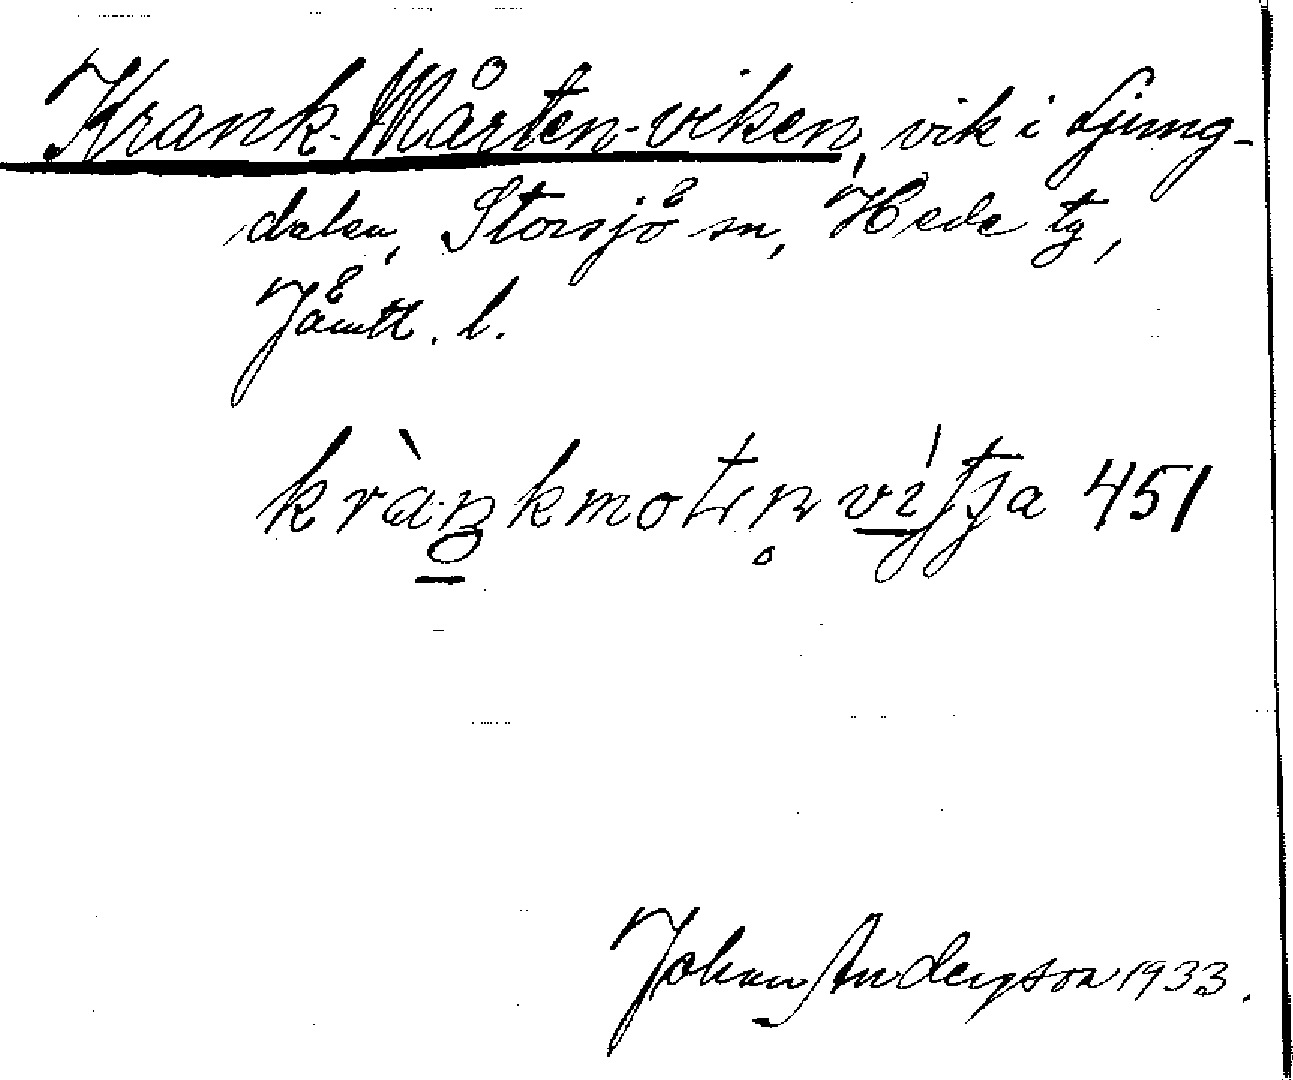 Krank-Mårten-viken, vik i Ljung-
dalen, Storsjö sn, Hede tg,
Jämtl. l.
451
Johan Anderson 1933.